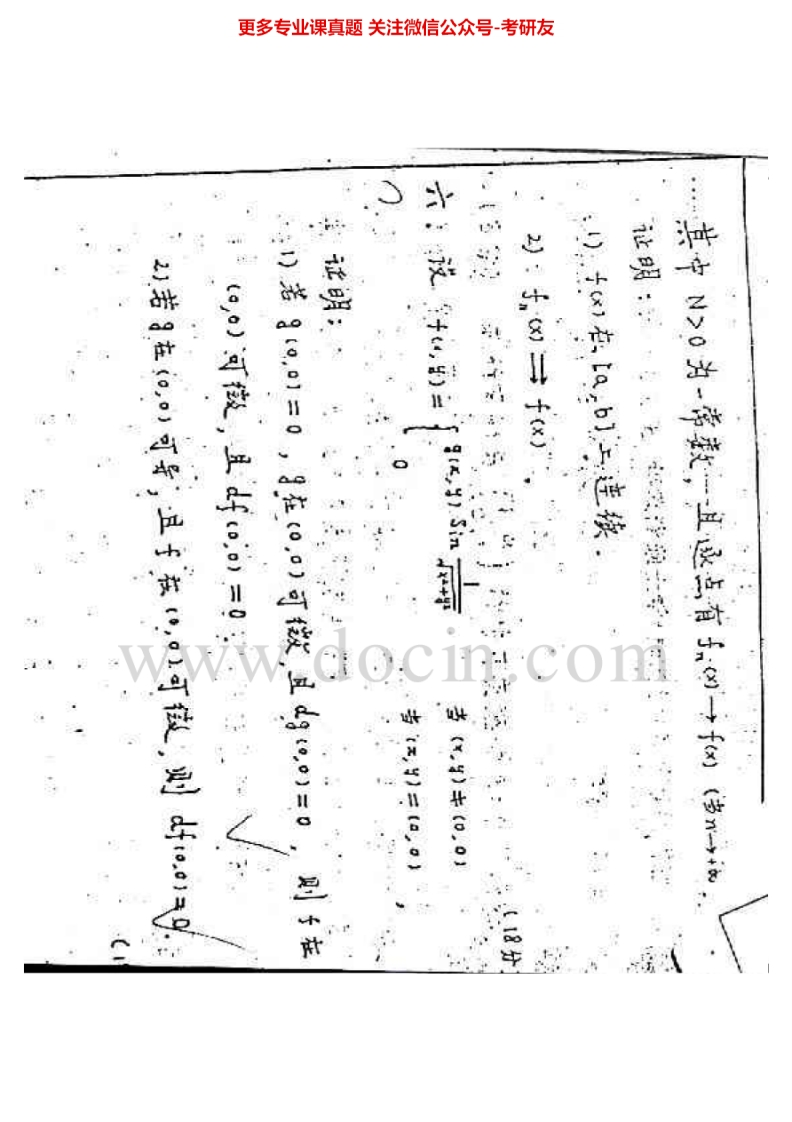 更多专业课真题 关注微信公众号-考研友
其中 N>0 为一常数,且逐点有 fₙ(x)→f(x) (当n→+∞
证明:
1) f(x)在[a,b]上连续.
2) fₙ(x)⇉f(x).
(18分
六. 设 f(x,y)={ g(x,y) sin 1/√(x²+y²) 若(x,y)≠(0,0)
0 若(x,y)=(0,0),
证明:
1) 若 g(0,0)=0, g在(0,0)可微,且dg(0,0)=0,则f在
(0,0)可微,且df(0,0)=0.
2) 若g在(0,0)可导,且f在(0,0)可微,则df(0,0)=0.
(1
www.docin.com